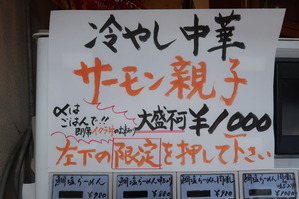 冷やし中華
サーモン親子
〆は
ごはんで!!
大盛不可 ¥1000
左下の限定を押して下さい
鯛塩らーめん
鯛塩らーめん
鯛塩らーめん